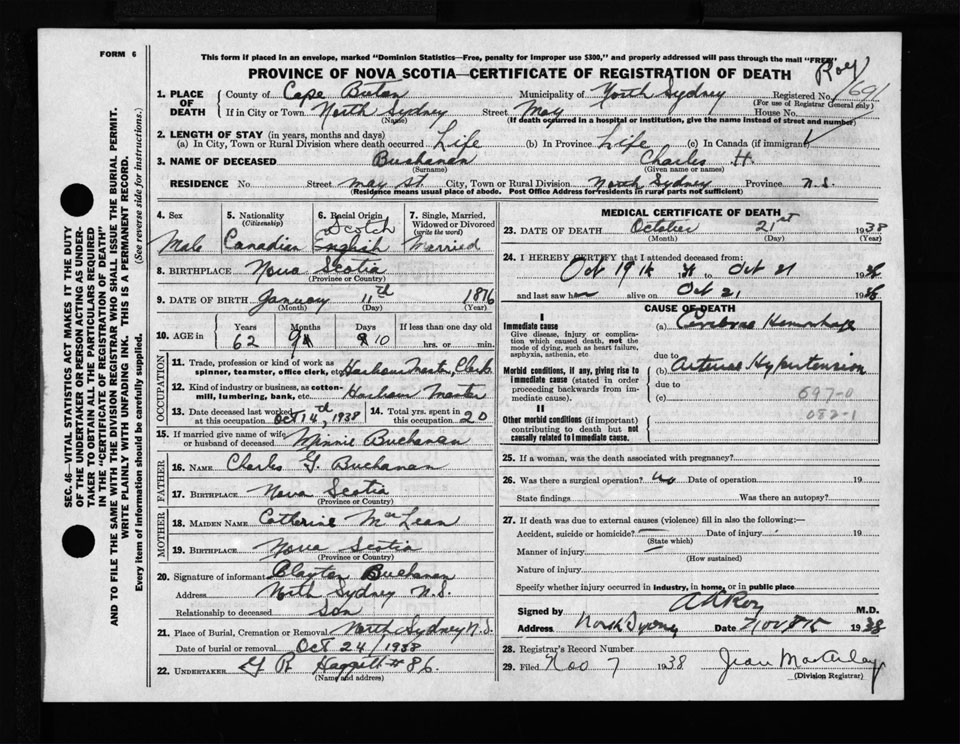 FORM 6
This form if placed in an envelope, marked "Dominion Statistics—Free, penalty for improper use $300," and properly addressed will pass through the mail "FREE"
PROVINCE OF NOVA SCOTIA—CERTIFICATE OF REGISTRATION OF DEATH
Roy
1. PLACE OF DEATH County of Cape Breton Municipality of North Sydney Registered No. 691
(For use of Registrar General only)
If in City or Town North Sydney Street May House No.
(Name) (If death occurred in a hospital or institution, give the name instead of street and number)
2. LENGTH OF STAY (in years, months and days)
(a) In City, Town or Rural Division where death occurred Life (b) In Province Life (c) In Canada (if immigrant)
3. NAME OF DECEASED Buchanan Charles H.
(Surname) (Given name or names)
RESIDENCE No. Street May St. City, Town or Rural Division North Sydney Province N.S.
(Residence means usual place of abode. Post Office Address for residents in rural parts not sufficient)
4. Sex 5. Nationality (Citizenship) 6. Racial Origin 7. Single, Married, Widowed or Divorced (write the word)
Male Canadian Scotch English Married
8. BIRTHPLACE Nova Scotia
(Province or Country)
9. DATE OF BIRTH January 11th 1876
(Month) (Day) (Year)
10. AGE in Years Months Days If less than one day old
62 9 10 hrs. or min.
OCCUPATION
11. Trade, profession or kind of work as spinner, teamster, office clerk, etc. Harbour Master, Clerk
12. Kind of industry or business, as cotton-mill, lumbering, bank, etc. Harbour Master
13. Date deceased last worked at this occupation Oct 14th, 1938 14. Total yrs. spent in this occupation 20
15. If married give name of wife or husband of deceased Minnie Buchanan
FATHER
16. NAME Charles G. Buchanan
17. BIRTHPLACE Nova Scotia
(Province or Country)
MOTHER
18. MAIDEN NAME Catherine McLean
19. BIRTHPLACE Nova Scotia
(Province or Country)
20. Signature of informant Clayton Buchanan
Address North Sydney N.S.
Relationship to deceased Son
21. Place of Burial, Cremation or Removal North Sydney N.S.
Date of burial or removal Oct 24/1938
22. UNDERTAKER G R Haggett #86.
(Name and address)
MEDICAL CERTIFICATE OF DEATH
23. DATE OF DEATH October 21st 1938
(Month) (Day) (Year)
24. I HEREBY CERTIFY that I attended deceased from:
Oct 19th to Oct 21 19
and last saw h alive on Oct 21 19
CAUSE OF DEATH
I
Immediate cause
Give disease, injury or complication which caused death, not the mode of dying, such as heart failure, asphyxia, asthenia, etc
(a) Cerebral Hemorrhage
due to
Morbid conditions, if any, giving rise to immediate cause (stated in order proceeding backwards from immediate cause).
(b) Arterial Hypertension
due to
(c)
697-0
082-1
II
Other morbid conditions (if important) contributing to death but not causally related to immediate cause.
25. If a woman, was the death associated with pregnancy?
26. Was there a surgical operation? no Date of operation 19
State findings Was there an autopsy?
27. If death was due to external causes (violence) fill in also the following:—
Accident, suicide or homicide? Date of injury 19
(State which)
Manner of injury
(How sustained)
Nature of injury
Specify whether injury occurred in industry, in home, or in public place
Signed by A Roy M.D.
Address North Sydney Date Nov 1938
28. Registrar's Record Number
29. Filed Nov 7 1938 Jean
(Division Registrar)
SEC. 46—VITAL STATISTICS ACT MAKES IT THE DUTY
OF THE UNDERTAKER OR PERSON ACTING AS UNDER-
TAKER TO OBTAIN ALL THE PARTICULARS REQUIRED
IN THE "CERTIFICATE OF REGISTRATION OF DEATH"
AND TO FILE THE SAME WITH THE DIVISION REGISTRAR WHO SHALL ISSUE THE BURIAL PERMIT.
WRITE PLAINLY WITH UNFADING INK. THIS IS A PERMANENT RECORD.
Every item of information should be carefully supplied. (See reverse side for instructions.)